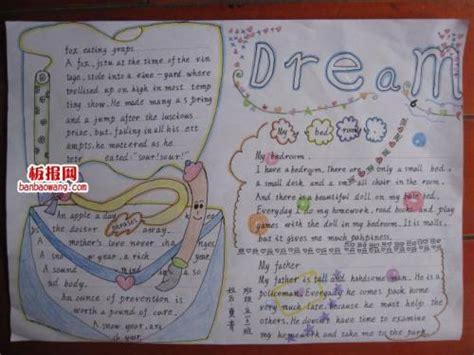 fox eating graps.
A fox, jstu at the time of the vin
tage, stole into a vine-yard where
trellised up on high in most temp
ting show. He made many a spring
and a jump after the luscious
prize, but, failing in all his att
empts, he mattered as he
retr eated "sour! sour!"
板报网
banbaowang.com
PHRASES
An apple a day
the doctor away.
A mother's love never changes.
A snow year, a rich
A sound mind in a sound
body.
An ounce of prevention is
worth a pound of care.
A snow year, are
year.
Dream
My bedroom
My bedroom.
I have a bedroom, there are only a small bed,
a small desk and a small chair in the room.
And there is a beautiful doll on my bed.
Everyday I do my homework, read books and play
games with the doll in my bedroom. It is malls,
but it gives me much
My father
My father is tall and handsome man. He is a
policeman. Everyday he comes back home
very much late. Because he must help the
others. He doesn't have time to examine
my homework and take me to the park.